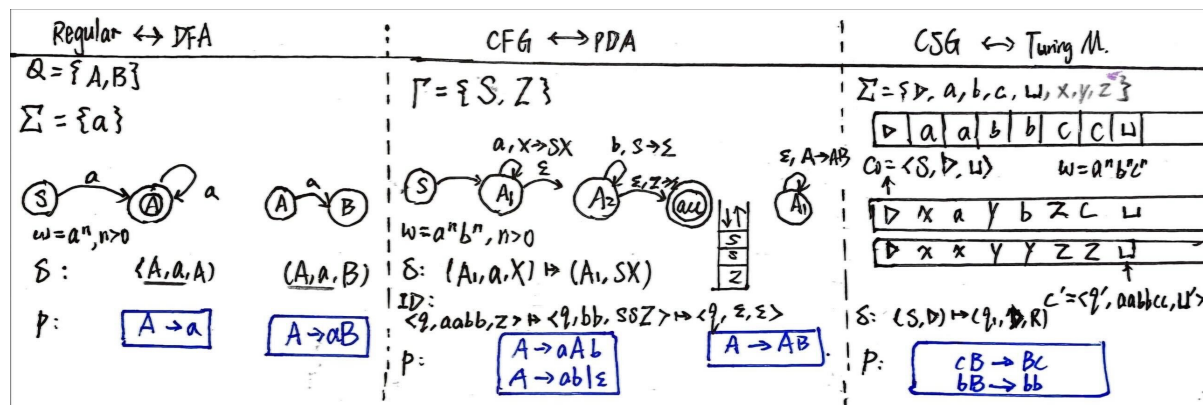 Regular ↔ DFA
Q = {A, B}
Σ = {a}
S a A a
A a B
w = aⁿ, n>0
δ: (A, a, A) (A, a, B)
P: A → a
A → aB
CFG ↔ PDA
Γ = {S, Z}
a, X→SX
ε
b, S→ε
ε, A→AB
S A₁ A₂ acc A₁
S
S
Z
w = aⁿbⁿ, n>0
δ: (A₁, a, X) ↦ (A₁, SX)
ID:
<q, aabb, Z> ↦ <q, bb, SSZ> ↦ <q, ε, ε>
P: A → aAb
A → ab|ε
A → AB
CSG ↔ Turing M.
Σ = {▷, a, b, c, ⊔, x, y, z}
▷ a a b b c c ⊔
C₀ = <S, ▷, ⊔> w = aⁿbⁿcⁿ
▷ x a y b z c ⊔
▷ x x y y z z ⊔
C' = <q', aabbcc, ⊔'>
δ: (S, ▷) ↦ (q₁, ▷, R)
P: cB → Bc
bB → bb